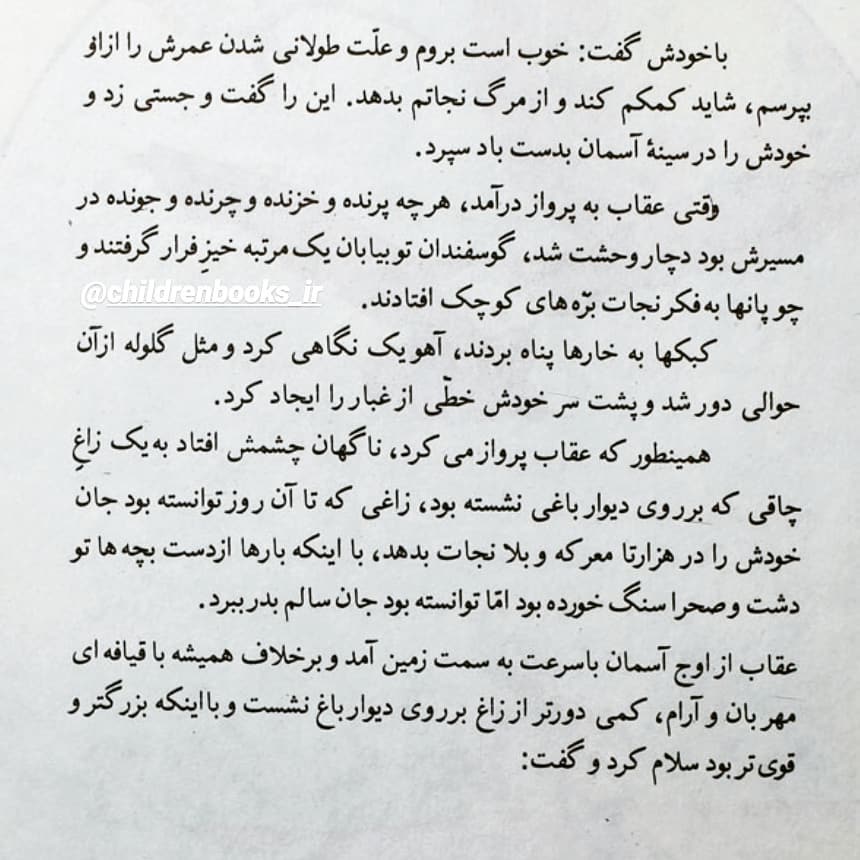 باخودش گفت: خوب است بروم و علّت طولانی شدن عمرش را ازاو
بپرسم، شاید کمکم کند و از مرگ نجاتم بدهد. این را گفت و جستی زد و
خودش را در سینهٔ آسمان بدست باد سپرد.
وقتی عقاب به پرواز درآمد، هرچه پرنده و خزنده و چرنده و جونده در
مسیرش بود دچار وحشت شد، گوسفندان تو بیابان یک مرتبه خیزِ فرار گرفتند و
@childrenbooks_ir
چوپانها به فکر نجات برّه‌های کوچک افتادند.
کبکها به خارها پناه بردند، آهو یک نگاهی کرد و مثل گلوله ازآن
حوالی دور شد و پشت سر خودش خطّی از غبار را ایجاد کرد.
همینطور که عقاب پرواز می کرد، ناگهان چشمش افتاد به یک زاغِ
چاقی که برروی دیوار باغی نشسته بود، زاغی که تا آن روز توانسته بود جان
خودش را در هزارتا معرکه و بلا نجات بدهد، با اینکه بارها ازدست بچه ها تو
دشت و صحرا سنگ خورده بود امّا توانسته بود جان سالم بدر ببرد.
عقاب از اوج آسمان باسرعت به سمت زمین آمد و برخلاف همیشه با قیافه ای
مهربان و آرام، کمی دورتر از زاغ برروی دیوار باغ نشست و بااینکه بزرگتر و
قوی تر بود سلام کرد و گفت: